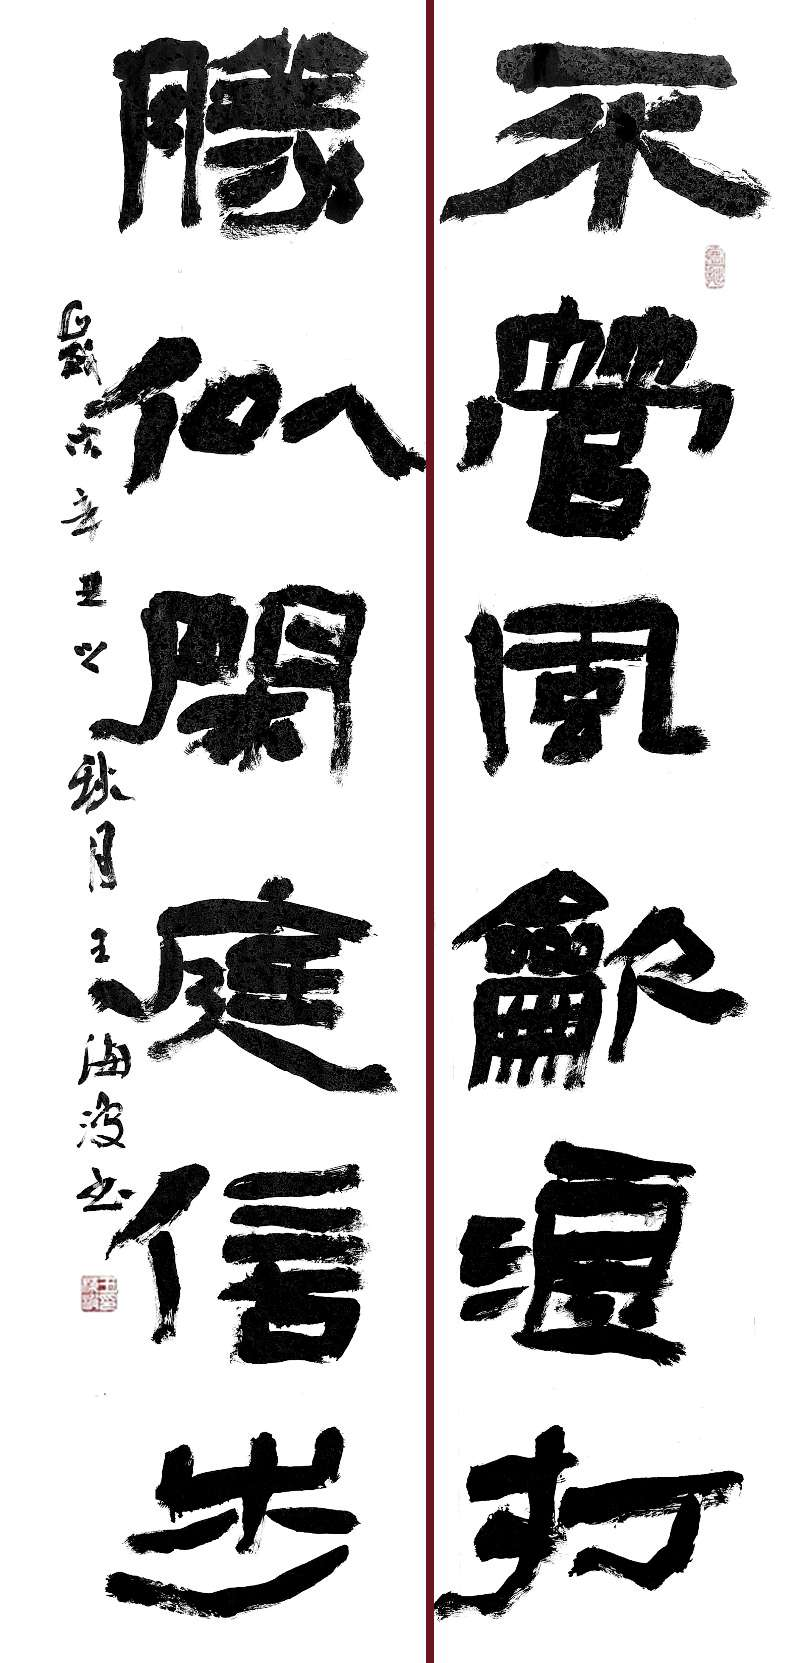 不管風龡浪打
勝似閑庭信步
歲次辛丑之秋月王海波书